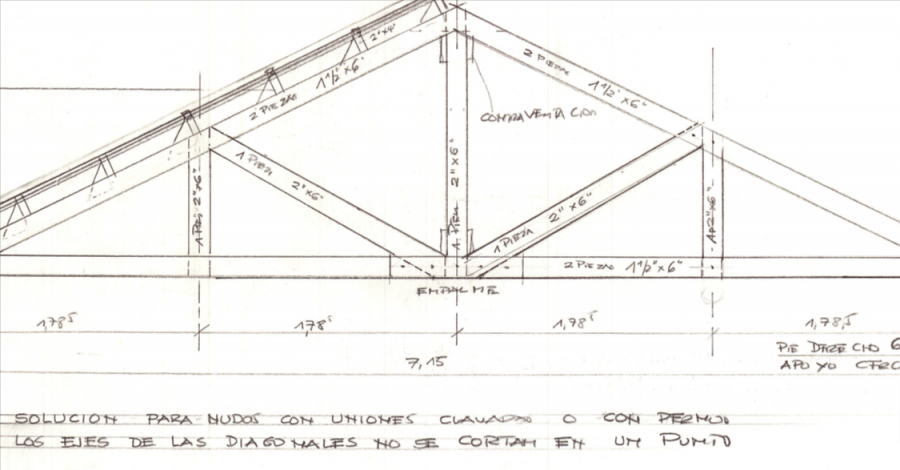 2"x4"
2 PIEZAS 1 1/2" x 6"
2 PIEZAS 1 1/2" x 6"
CONTRAVENTACION
1 PIEZA 2" x 6"
2" x 6"
1 PIEZA 2" x 6"
2"x6"
2"x6"
2 PIEZAS 1 1/2" x 6"
EMPALME
1,78⁵ 1,78⁵ 1,78⁵ 1,78,5
7,15
PIE DERECHO 6
APOYO
SOLUCION PARA NUDOS CON UNIONES CLAVADAS O CON PERNOS
LOS EJES DE LAS DIAGONALES NO SE CORTAN EN UN PUNTO